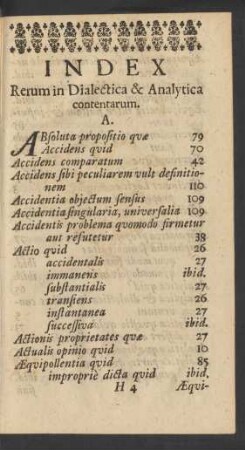 INDEX
Rerum in Dialectica & Analytica
contentarum.
A.
ABsoluta propositio qvæ 79
Accidens qvid 70
Accidens comparatum 42
Accidens sibi peculiarem vult definitio-
nem 110
Accidentia objectum sensus 109
Accidentia singularia, universalia 109
Accidentis problema qvomodo firmetur
aut refutetur 38
Actio qvid 26
accidentalis 27
immanens ibid.
substantialis 27
transiens 26
instantanea 27
successiva ibid.
Actionis proprietates qvæ 27
Actualis opinio qvid 10
Æqvipollentia qvid 85
impropriè dicta qvid ibid.
H 4 Æqvi-